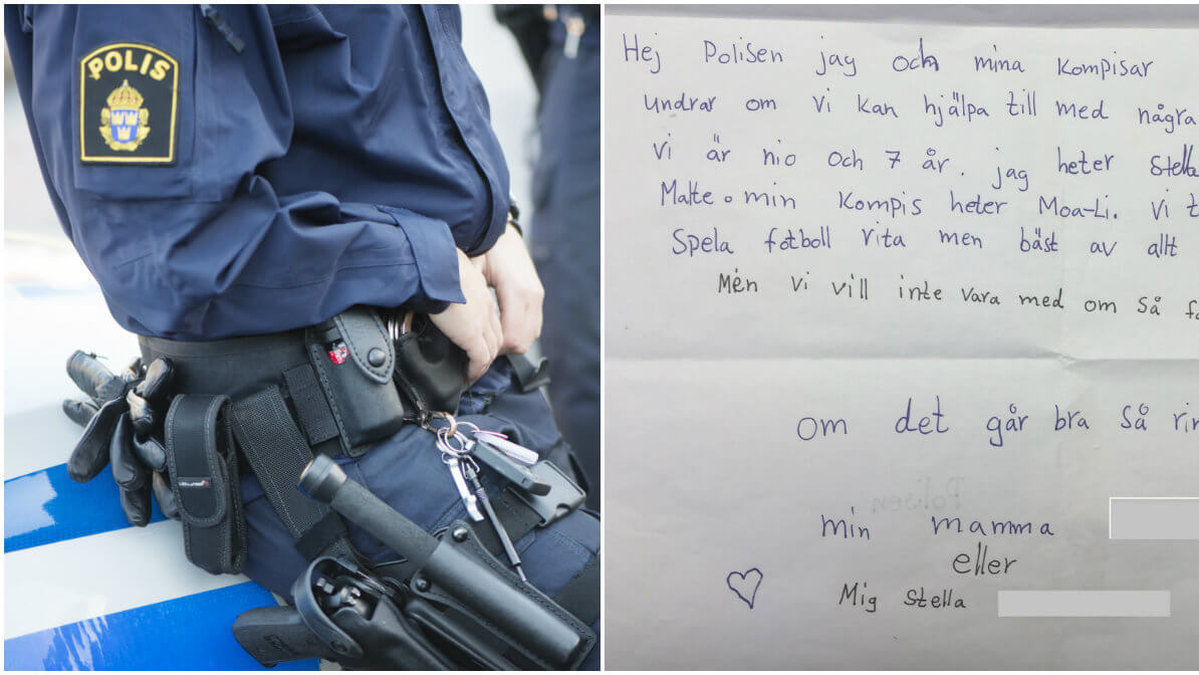 POLIS
Hej Polisen jag och mina kompisar
undrar om vi kan hjälpa till med några
vi är nio och 7 år. jag heter Stella
Malte. min kompis heter Moa-Li. vi t
Spela fotboll rita men bäst av allt
Men vi vill inte vara med om så fa
om det går bra så rin
Polisen
min mamma
eller
Mig Stella